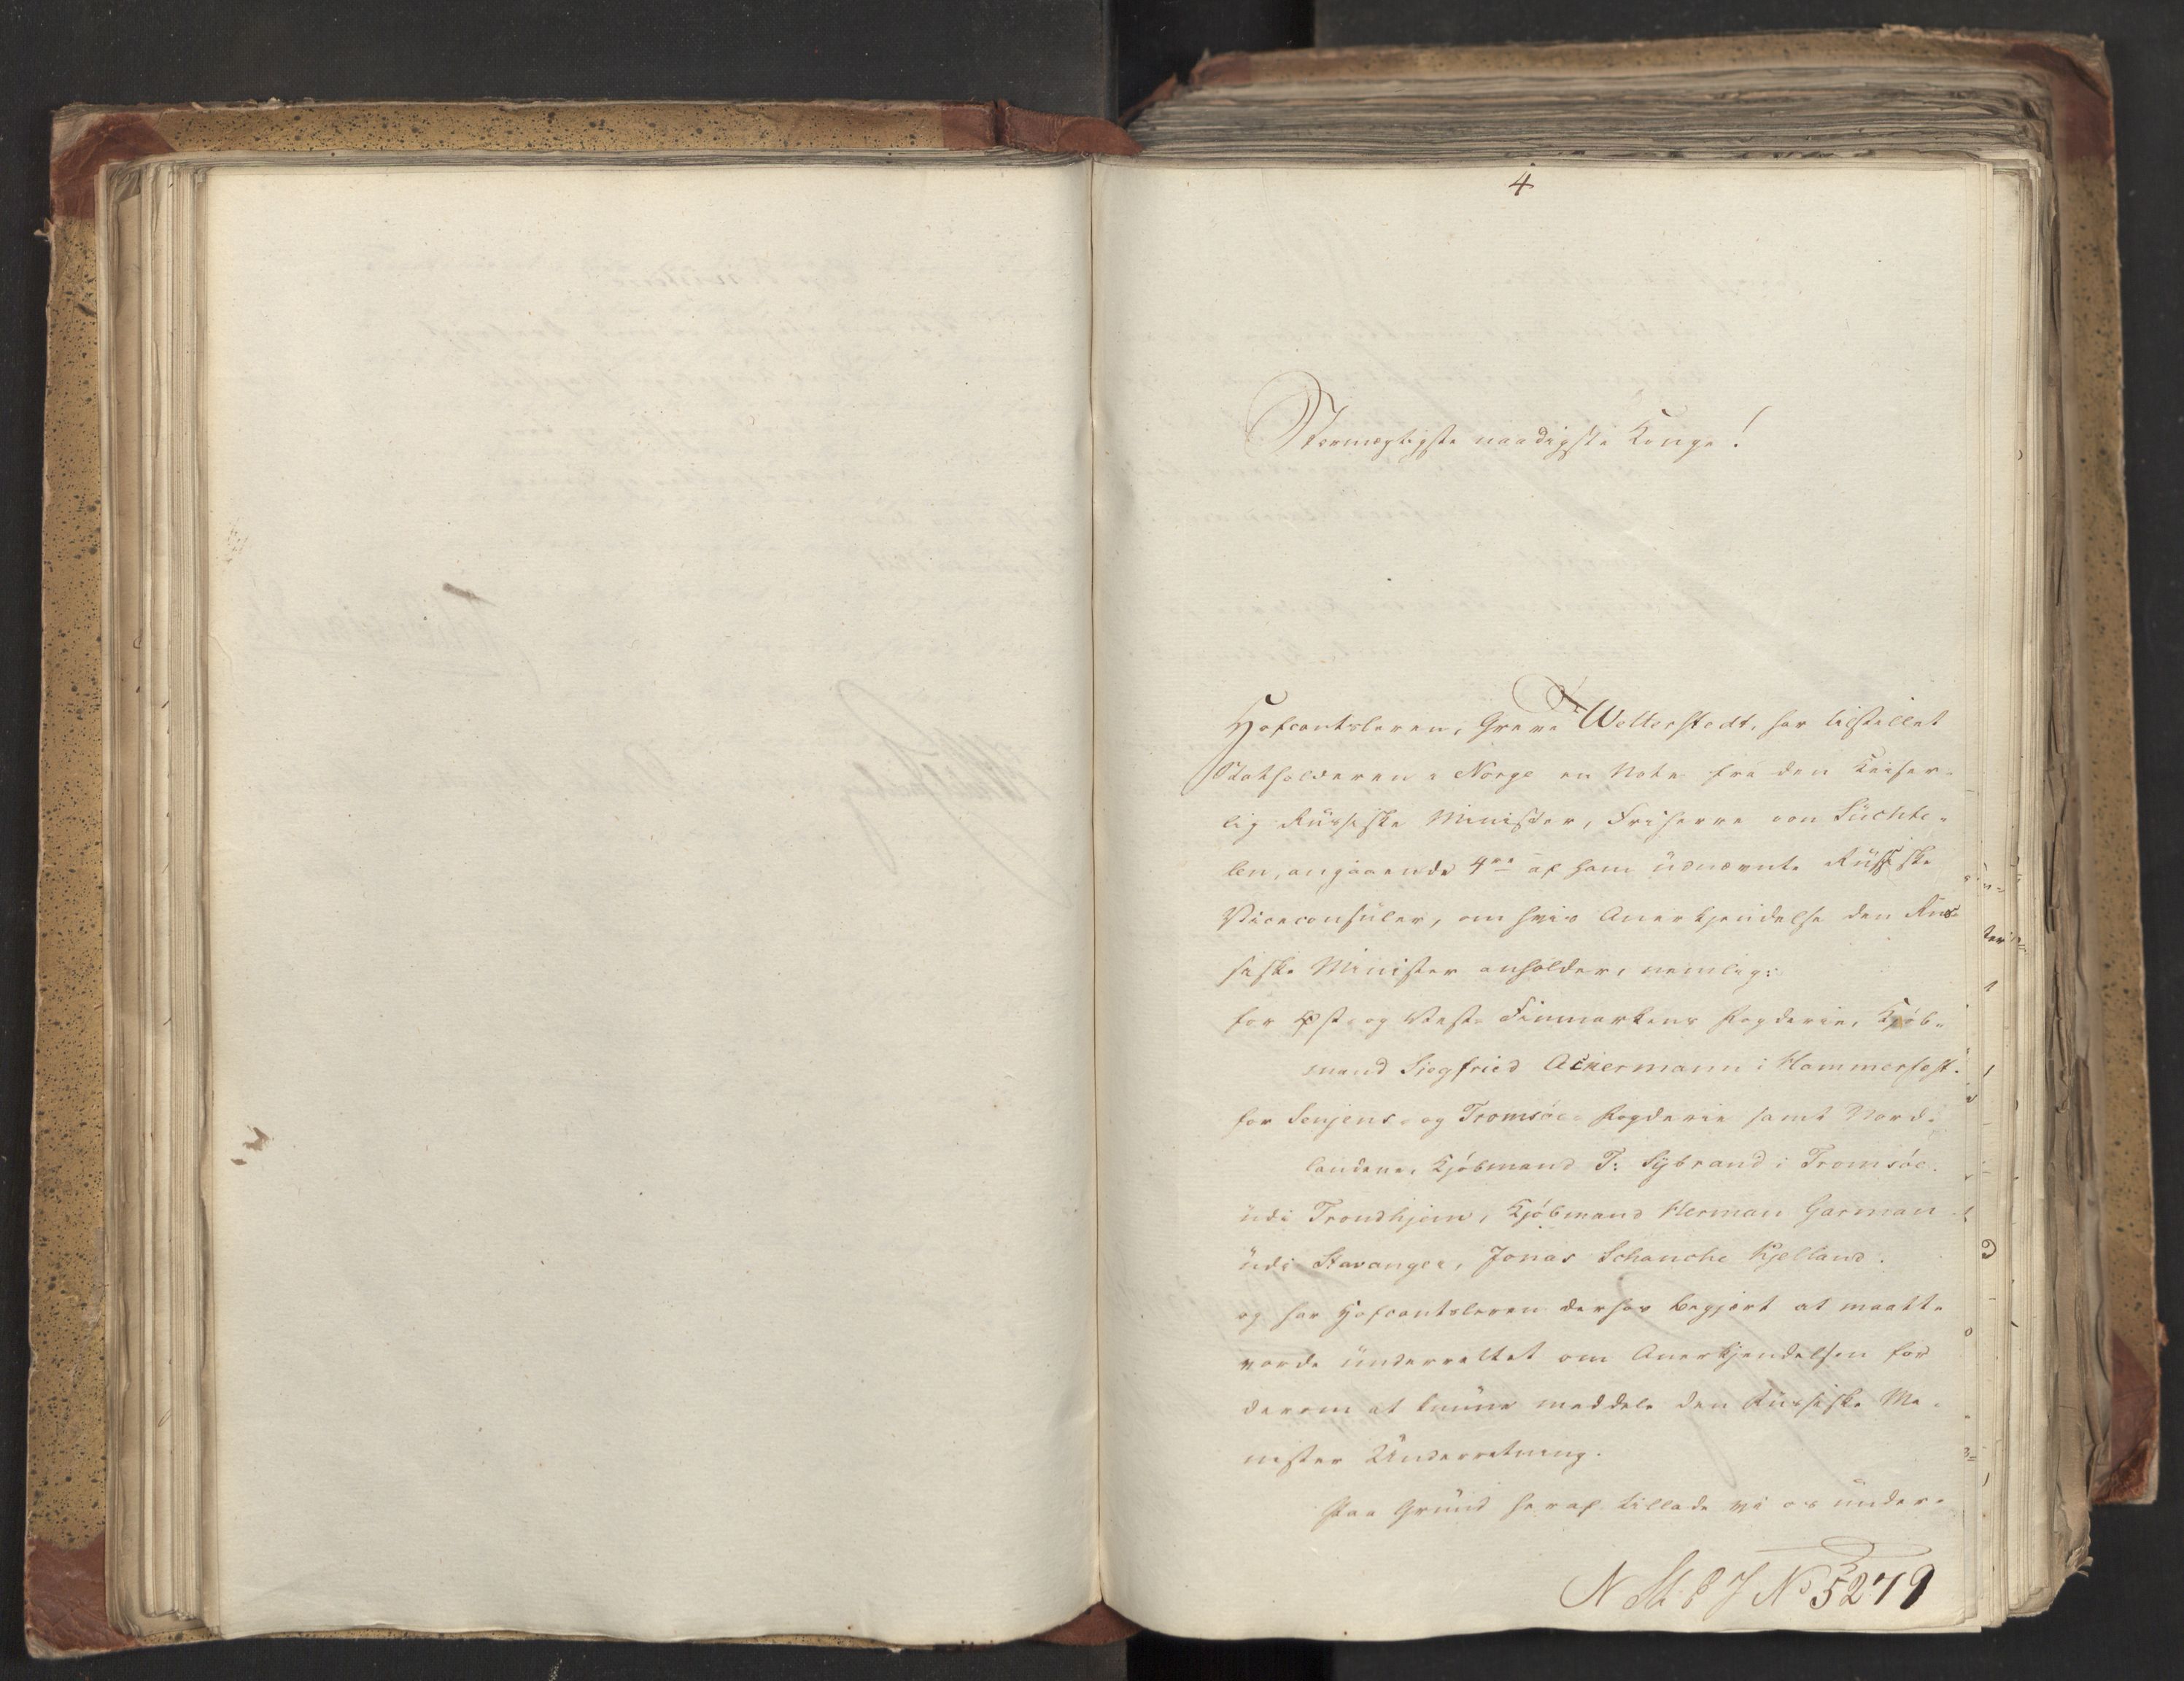 4
Stormægtigste naadigste Konge!
Hofcantsleren, Greve Wetterstedt, har tilstillet
Statholderen i Norge en Note fra den Keiser-
lig Russiske Minister, Friherre von Suchte-
len, angaaende 4re af ham udnævnte Russiske
Viceconsuler, om hvis Anerkjendelse den Rus-
siske Minister anholder, nemlig:
for Øst- og Vest- Finmarkens Fogderie, Kjøb-
mand Siegfried Ackermann i Hammerfest.
for Senjens- og Tromsøes Fogderie samt Nord-
landene, Kjøbmand T: Sybrand i Tromsøe.
udi Trondhjem, Kjøbmand Herman Garman
udi Stavanger, Jonas Schanche Kjelland.
og har Hofcantsleren derhos begjert at maatte
vorde underrettet om Anerkjendelsen for
derom at kunne meddele den Russiske Mi-
nister Underretning.
Paa Grund heraf tillade vi os under-
N St. P J No 5279